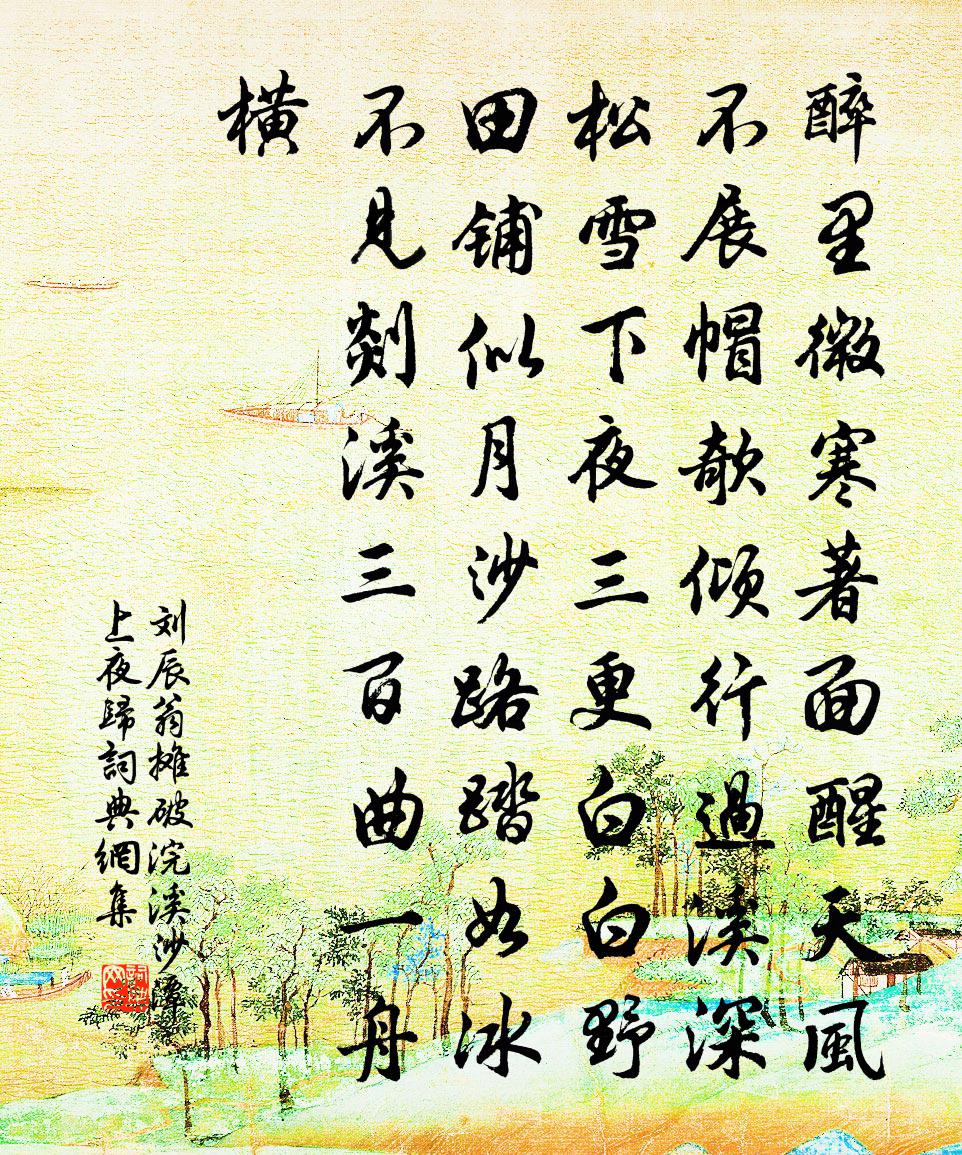 醉里微寒著面醒天風
不展帽欹傾行過溪深
松雪下夜三更白白野
田鋪似月沙路踏如冰
不見剡溪三百曲一舟
橫
刘辰翁摊破浣溪沙潭
上夜歸詞典網集